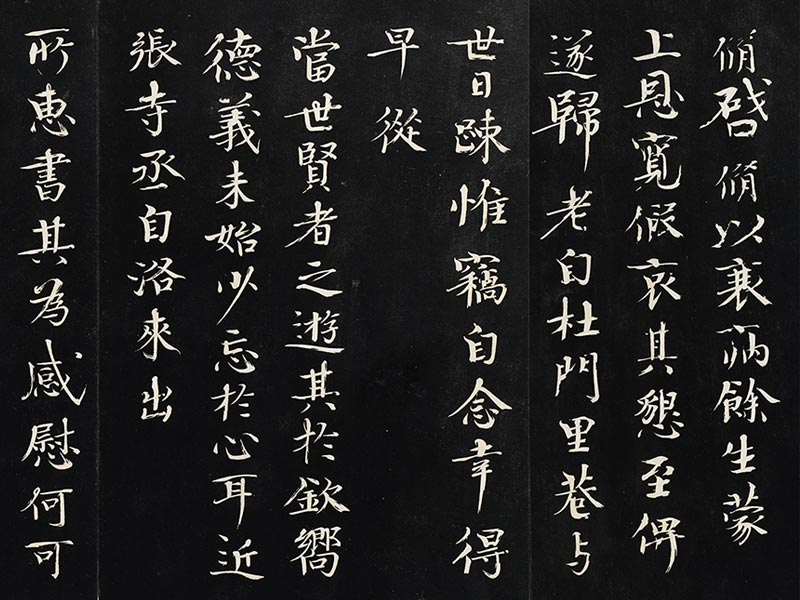 脩啓脩以衰病餘生蒙
上恩寬假哀其懇至俾
遂歸老自杜門里巷与
世日踈惟竊自念幸得
早從
當世賢者之遊其於欽嚮
德義未始少忘於心耳近
張寺丞自洛來出
所惠書其為感慰何可